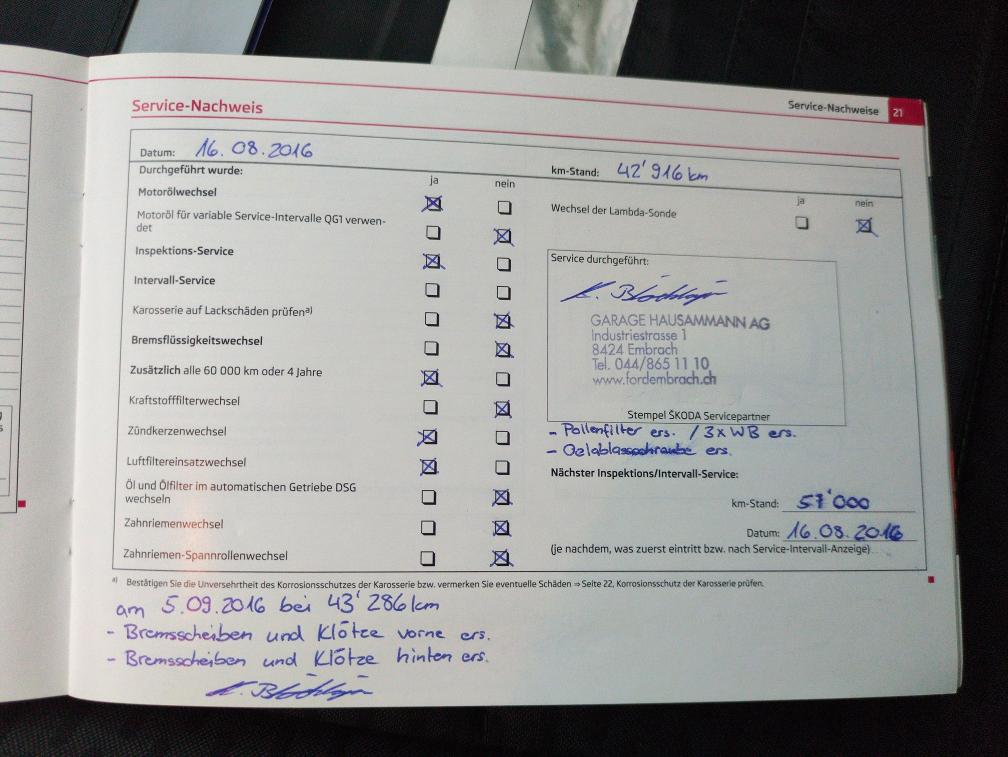 Service-Nachweise 21
Service-Nachweis
Datum: 16.08.2016
km-Stand: 42'916 km
Durchgeführt wurde:
ja nein
Motorölwechsel
Motoröl für variable Service-Intervalle QG1 verwen-
det
Inspektions-Service
Intervall-Service
Karosserie auf Lackschäden prüfen a)
Bremsflüssigkeitswechsel
Zusätzlich alle 60 000 km oder 4 Jahre
Kraftstofffilterwechsel
Zündkerzenwechsel
Luftfiltereinsatzwechsel
Öl und Ölfilter im automatischen Getriebe DSG
wechseln
Zahnriemenwechsel
Zahnriemen-Spannrollenwechsel
ja nein
Wechsel der Lambda-Sonde
Service durchgeführt:
GARAGE HAUSAMMANN AG
Industriestrasse 1
8424 Embrach
Tel. 044/865 11 10
www.fordembrach.ch
Stempel ŠKODA Servicepartner
- Pollenfilter ers. / 3x WB ers.
- Oelablassschraube ers.
Nächster Inspektions/Intervall-Service:
km-Stand: 57'000
Datum: 16.08.2016
(je nachdem, was zuerst eintritt bzw. nach Service-Intervall-Anzeige)
a) Bestätigen Sie die Unversehrtheit des Korrosionsschutzes der Karosserie bzw. vermerken Sie eventuelle Schäden ⇒ Seite 22, Korrosionsschutz der Karosserie prüfen.
am 5.09.2016 bei 43'286 km
- Bremsscheiben und Klötze vorne ers.
- Bremsscheiben und Klötze hinten ers.